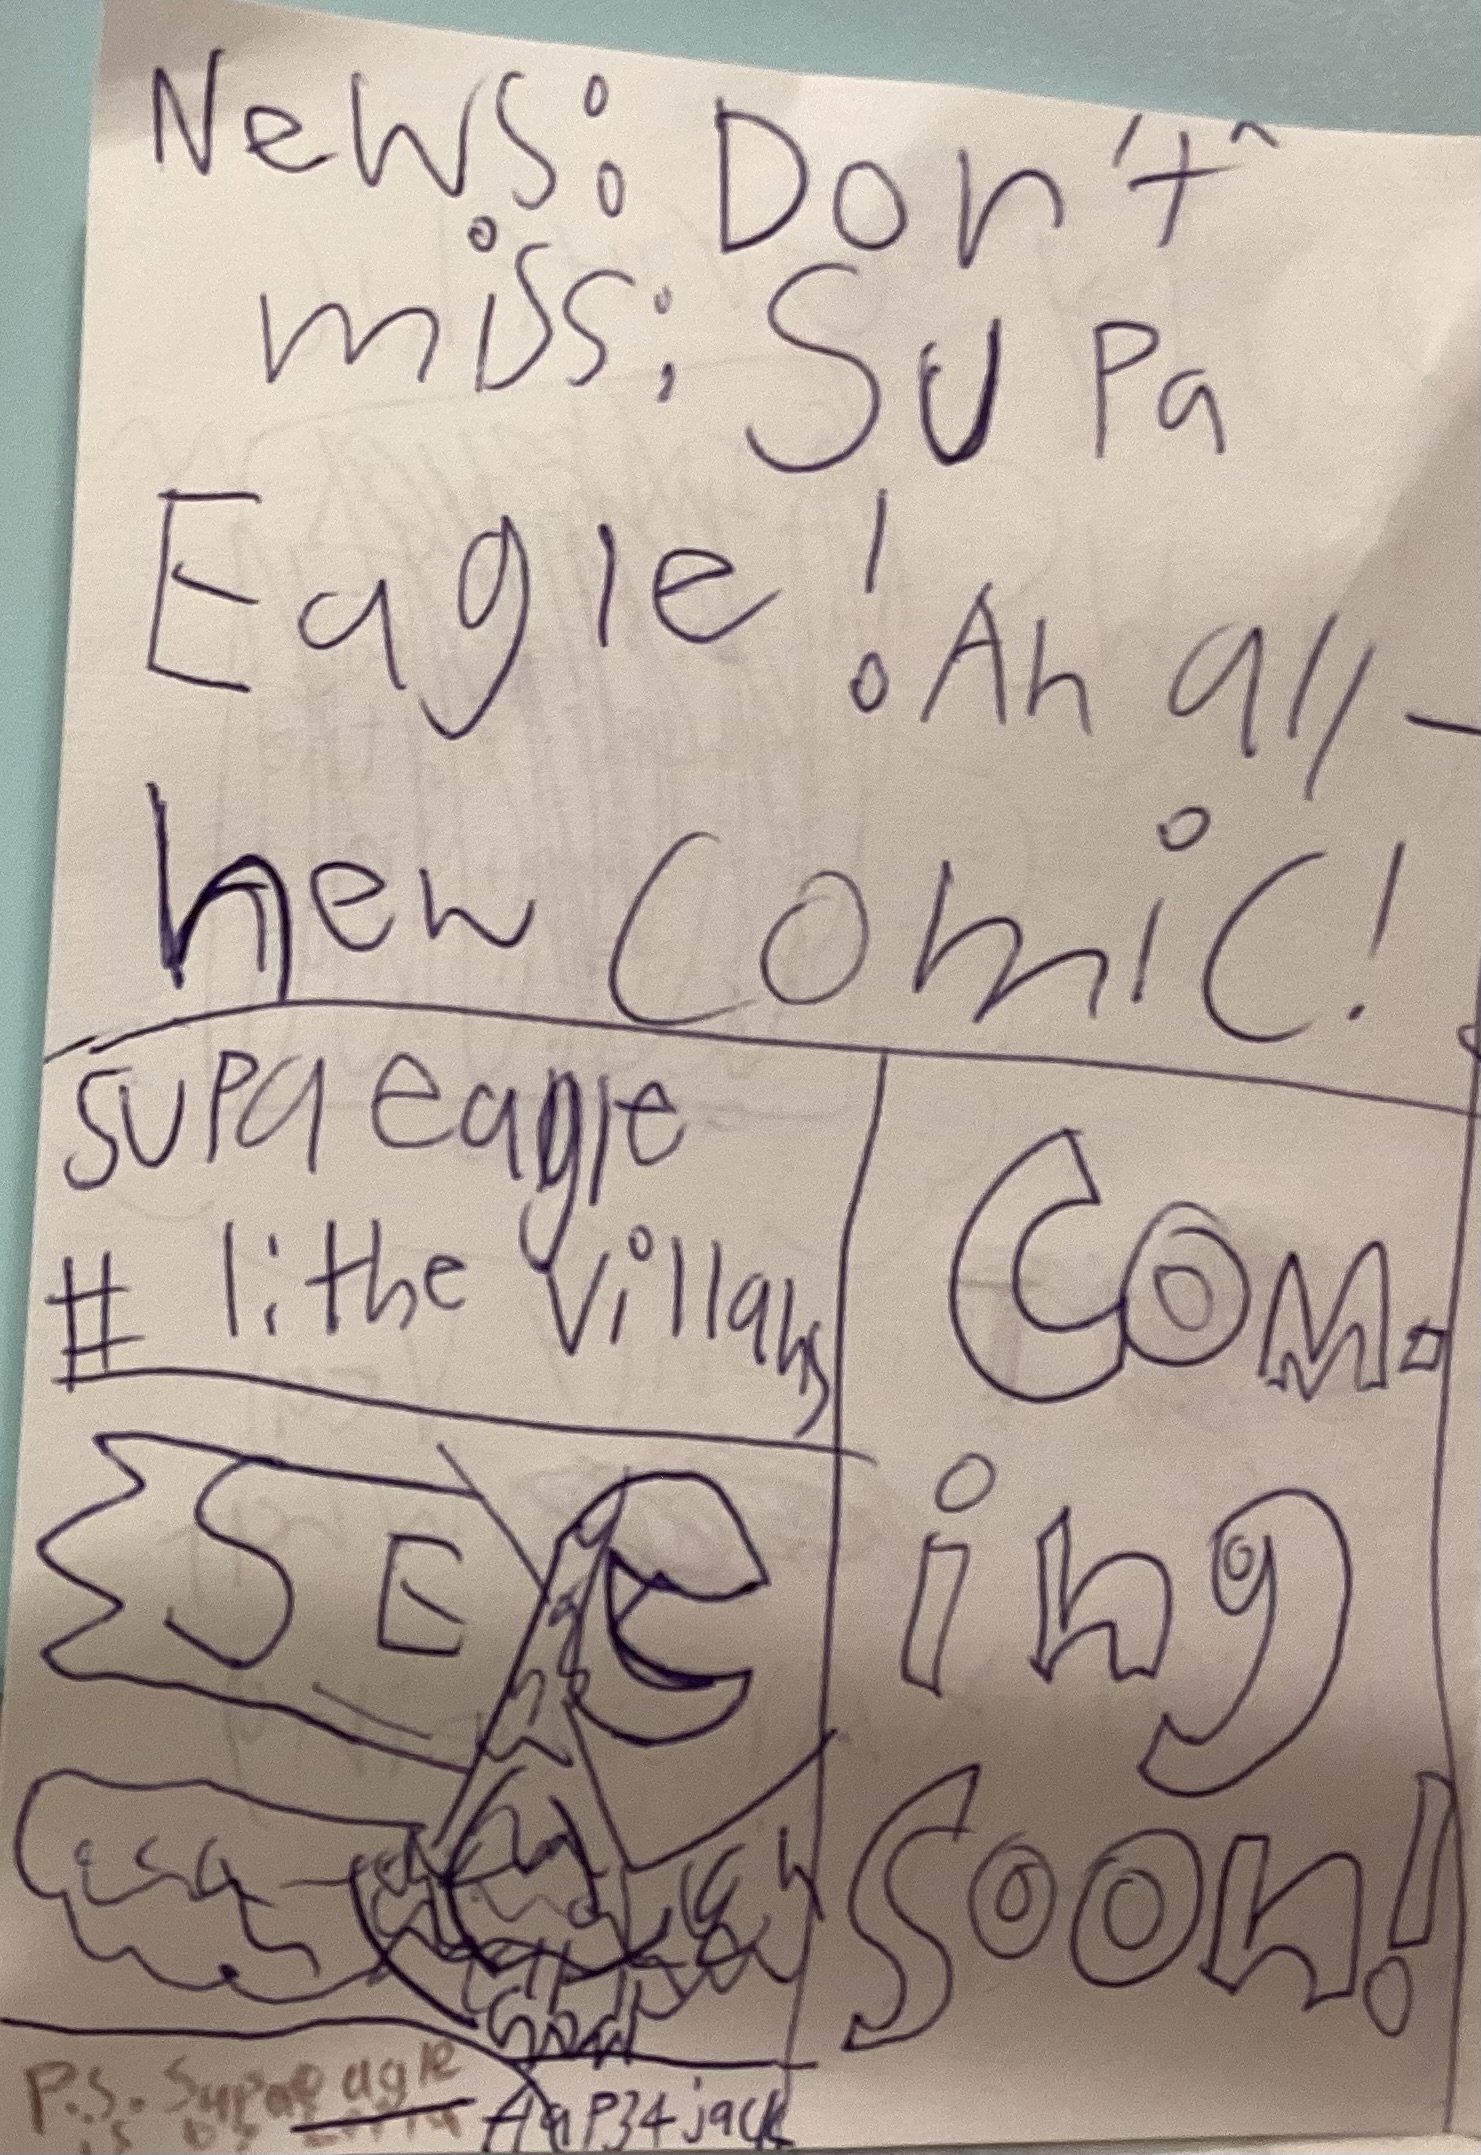 News: Don't
miss; Supa
Eagle! An all-
new Comic!
supa eagle
# 1: the Villans
Com-
ing
Soon!
SE
P.S. Supa eagle
is by